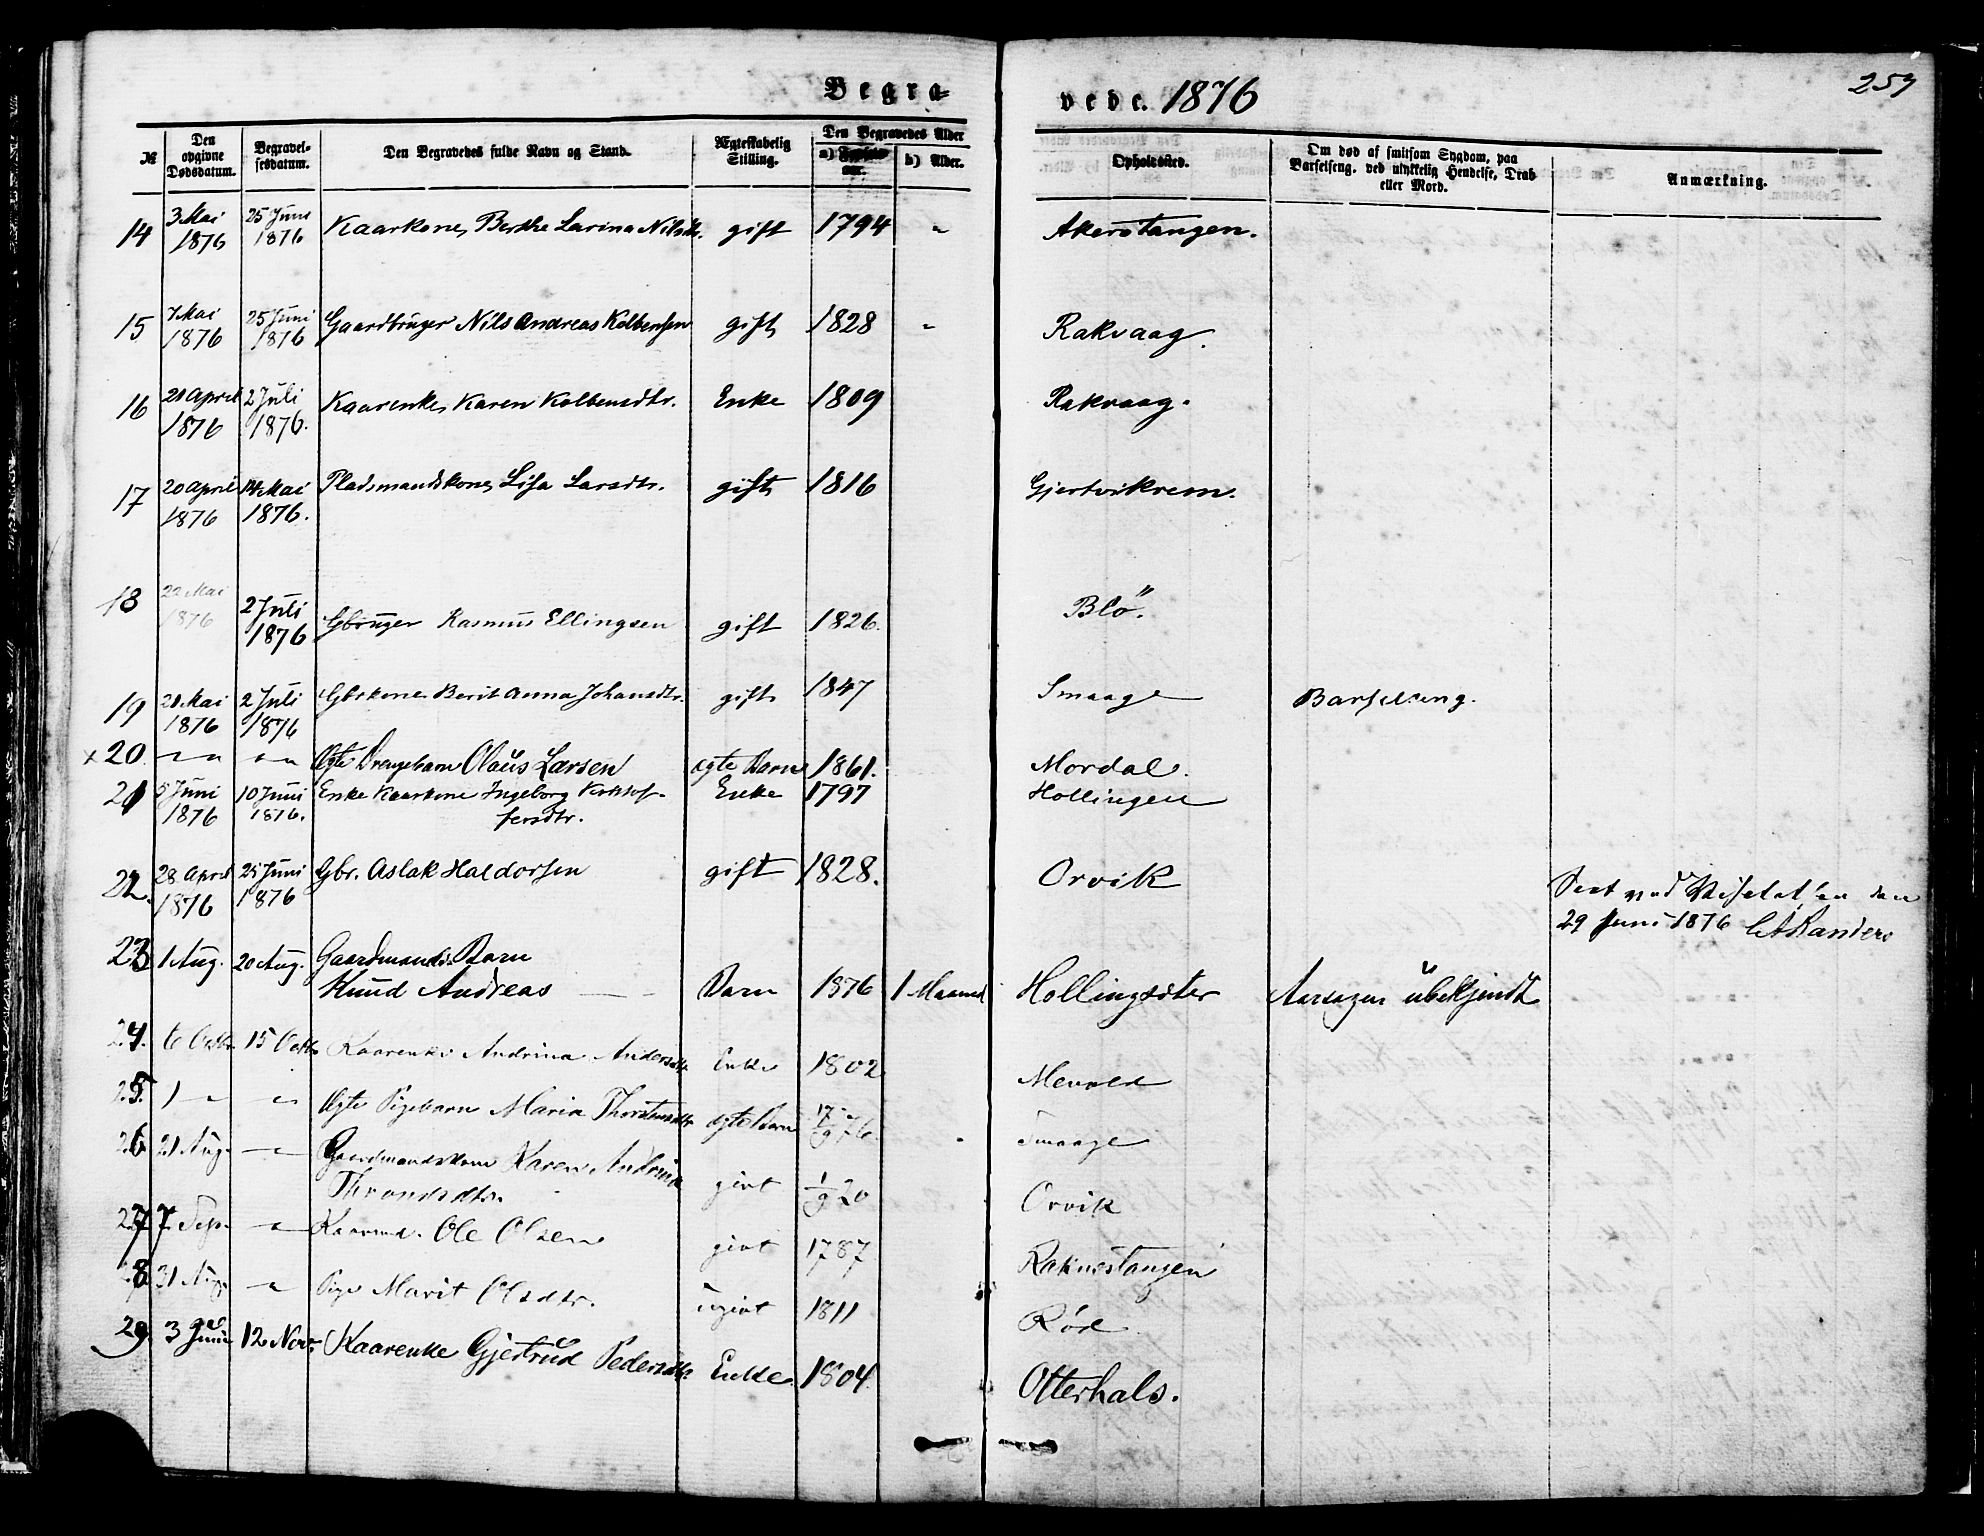 Begra-
vede. 1876
257
№ Den opgivne Dødsdatum. Begravelsesdatum. Den Begravedes fulde Navn og Stand. Ægteskabelig Stilling. Den Begravedes Alder a) b) Alder. Opholdssted. Om død af smitsom Sygdom, paa Barselseng, ved ulykkelig Hendelse, Drab eller Mord. Anmærkning.
14 3 Mai 1876 25 Juni 1876 Kaarkone, Berthe Larina Nilsdtr. gift 1794 " Akerstangen.
15 7 Mai 1876 25 Juni 1876 Gaardbruger Nils Andreas Kolbensen gift 1828 " Rakvaag.
16 21 April 1876 2 Juli 1876. Kaarenke, Karen Kolbensdtr. Enke 1809 Rakvaag.
17 20 April 1876 14 Mai 1876. Pladsmandskone, Lisa Larsdtr. gift 1816 Gjertvikrem.
18 22 Mai 1876 2 Juli 1876 Gbruger Rasmus Ellingsen gift 1826. Blø.
19 21 Mai 1876 2 Juli 1876 Gbrkone Berit Anna Johansdtr. gift 1847 Smaage Barselseng.
x 20. — " — " Ægte Drengebarn Olaus Larsen ægte Barn 1861. Mordal.
21 5 Juni 1876 10 Juni 1876. Enke Kaarkone Ingeborg Kristof-
fersdtr. Enke 1797 Hollingen
22. 28 April 1876 25 Juni 1876 Gbr. Aslak Haldorsen gift 1828. Orvik
Seet ved Visitatsen den
29 Juni 1876
23 1 Aug. 20 Aug. Gaardmands Barn
Knud Andreas — Barn 1876 1 Maaned Hollingsæter Aarsagen ubekjendt
24. 6 Octbr. 15 Octbr. Kaarenke Andrina Andersdtr. Enke 1802 Mevold
25. 1 — " — " Ægte Pigebarn Maria Thorstensdtr ægte Barn 17/9 76. Smaage
26 21 Aug. — " Gaardmandskone Karen Andrina
Throndsdtr. givt 1/9 20 Orvik
27 7 Sep. — " Kaarmd. Ole Olsen givt 1787 Raknestangen
28. 31 Aug. — " Pige Marit Olsdtr. ugivt 1811 Rød
29. 3 Juni 12 Nov. Kaarenke Gjertrud Pedersdtr. Enke 1804. Otterhals.